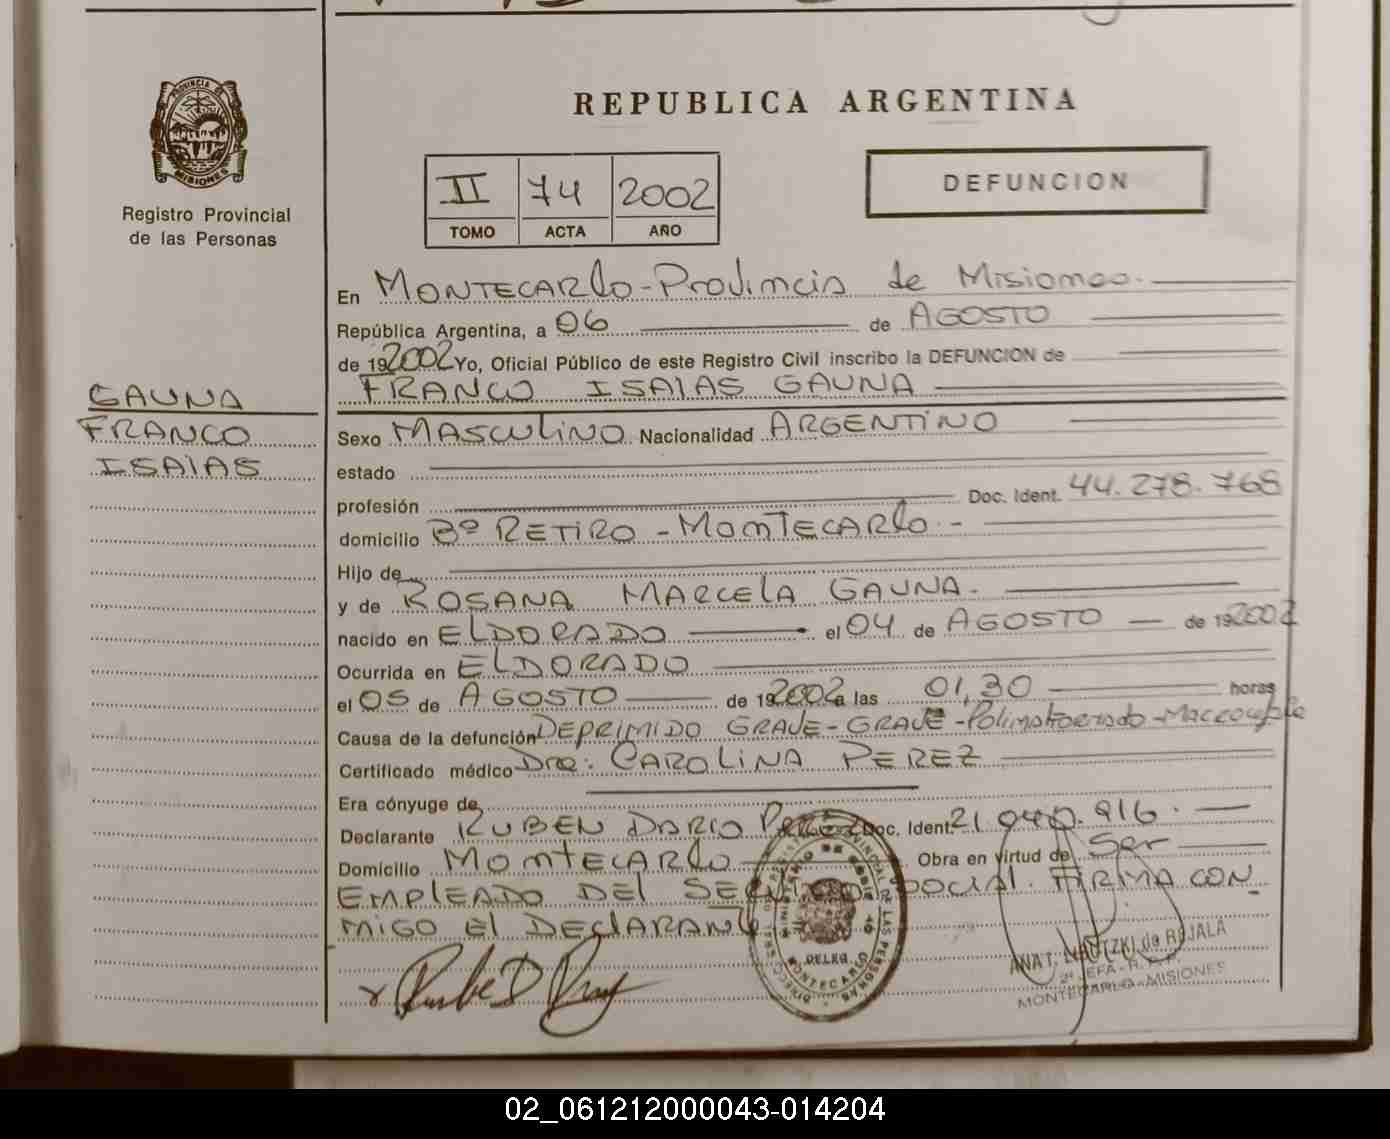 PROVINCIA DE
MISIONES
Registro Provincial
de las Personas
GAUNA
FRANCO
ISAIAS
REPUBLICA ARGENTINA
II 74 2002
TOMO ACTA AÑO
DEFUNCION
En MONTECARLO - Provincia de Misiones.
República Argentina, a 06 de AGOSTO
de 192002 Yo, Oficial Público de este Registro Civil inscribo la DEFUNCION de
FRANCO ISAIAS GAUNA
Sexo MASCULINO Nacionalidad ARGENTINO
estado
profesión Doc. Ident. 44.278.768
domicilio Bº RETIRO - MONTECARLO -
Hijo de
y de ROSANA MARCELA GAUNA.
nacido en ELDORADO el 04 de AGOSTO de 192002
Ocurrida en ELDORADO
el 05 de AGOSTO de 192002 a las 01,30 horas
Causa de la defunción DEPRIMIDO GRAVE - GRAVE -
Certificado médico Dra: CAROLINA PEREZ
Era cónyuge de
Declarante RUBEN DARIO Doc. Ident. 21.040.916.
Domicilio MONTECARLO Obra en virtud de Ser
EMPLEADO DEL SOCIAL. FIRMA CON
MIGO El DECLARANTE
DELEG.
MONTECARLO
ANA T. de REJALA
MONTECARLO - MISIONES
02_061212000043-014204